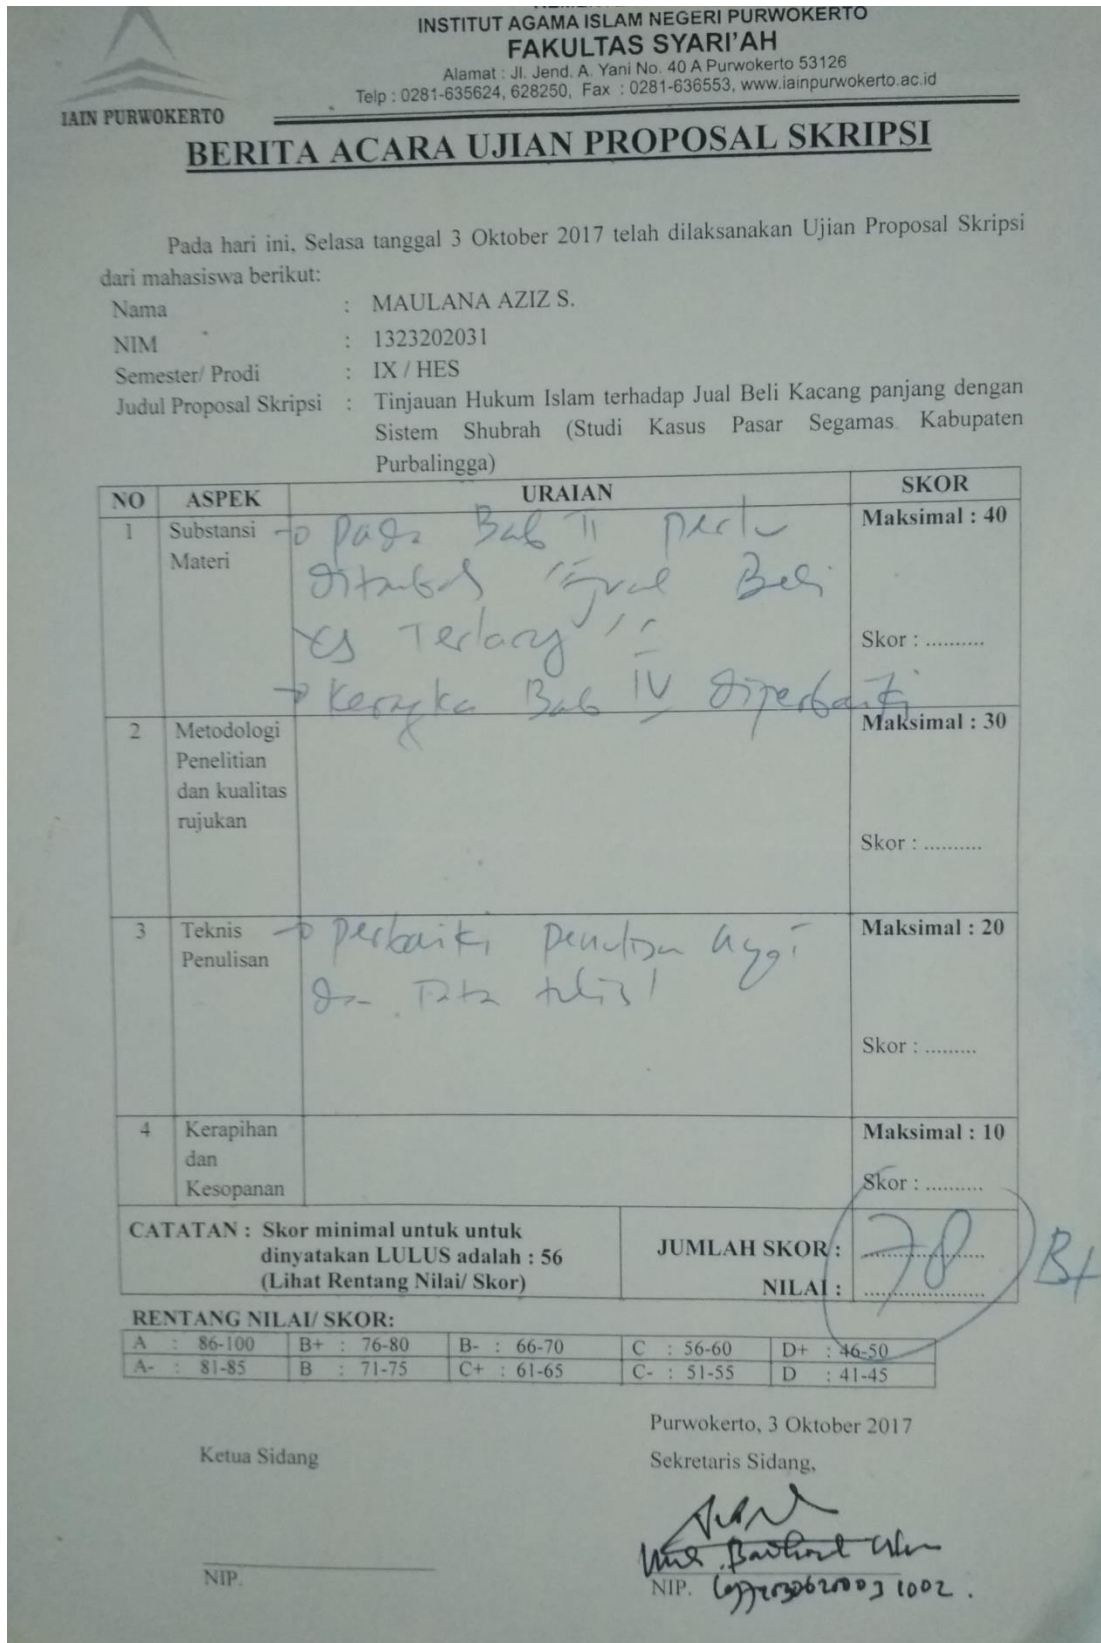 INSTITUT AGAMA ISLAM NEGERI PURWOKERTO
FAKULTAS SYARI'AH
Alamat : Jl. Jend. A. Yani No. 40 A Purwokerto 53126
Telp : 0281-635624, 628250, Fax : 0281-636553, www.iainpurwokerto.ac.id
IAIN PURWOKERTO
BERITA ACARA UJIAN PROPOSAL SKRIPSI
Pada hari ini, Selasa tanggal 3 Oktober 2017 telah dilaksanakan Ujian Proposal Skripsi
dari mahasiswa berikut:
Nama : MAULANA AZIZ S.
NIM : 1323202031
Semester/ Prodi : IX / HES
Judul Proposal Skripsi : Tinjauan Hukum Islam terhadap Jual Beli Kacang panjang dengan
Sistem Shubrah (Studi Kasus Pasar Segamas Kabupaten
Purbalingga)
NO ASPEK URAIAN SKOR
1 Substansi Materi
→ pada Bab II perlu
ditambah "Jual Beli
yg Terlarang"
→ Kerangka Bab IV diperbaiki
Maksimal : 40
Skor : ..........
2 Metodologi
Penelitian
dan kualitas
rujukan
Maksimal : 30
Skor : ..........
3 Teknis
Penulisan
→ perbaiki penulisan
dan Tata tulis!
Maksimal : 20
Skor : .........
4 Kerapihan
dan
Kesopanan
Maksimal : 10
Skor : ..........
CATATAN : Skor minimal untuk untuk
dinyatakan LULUS adalah : 56
(Lihat Rentang Nilai/ Skor)
JUMLAH SKOR : 78 B+
NILAI : ......................
RENTANG NILAI/ SKOR:
A : 86-100 B+ : 76-80 B- : 66-70 C : 56-60 D+ : 46-50
A- : 81-85 B : 71-75 C+ : 61-65 C- : 51-55 D : 41-45
Purwokerto, 3 Oktober 2017
Ketua Sidang
Sekretaris Sidang,
NIP.
NIP.